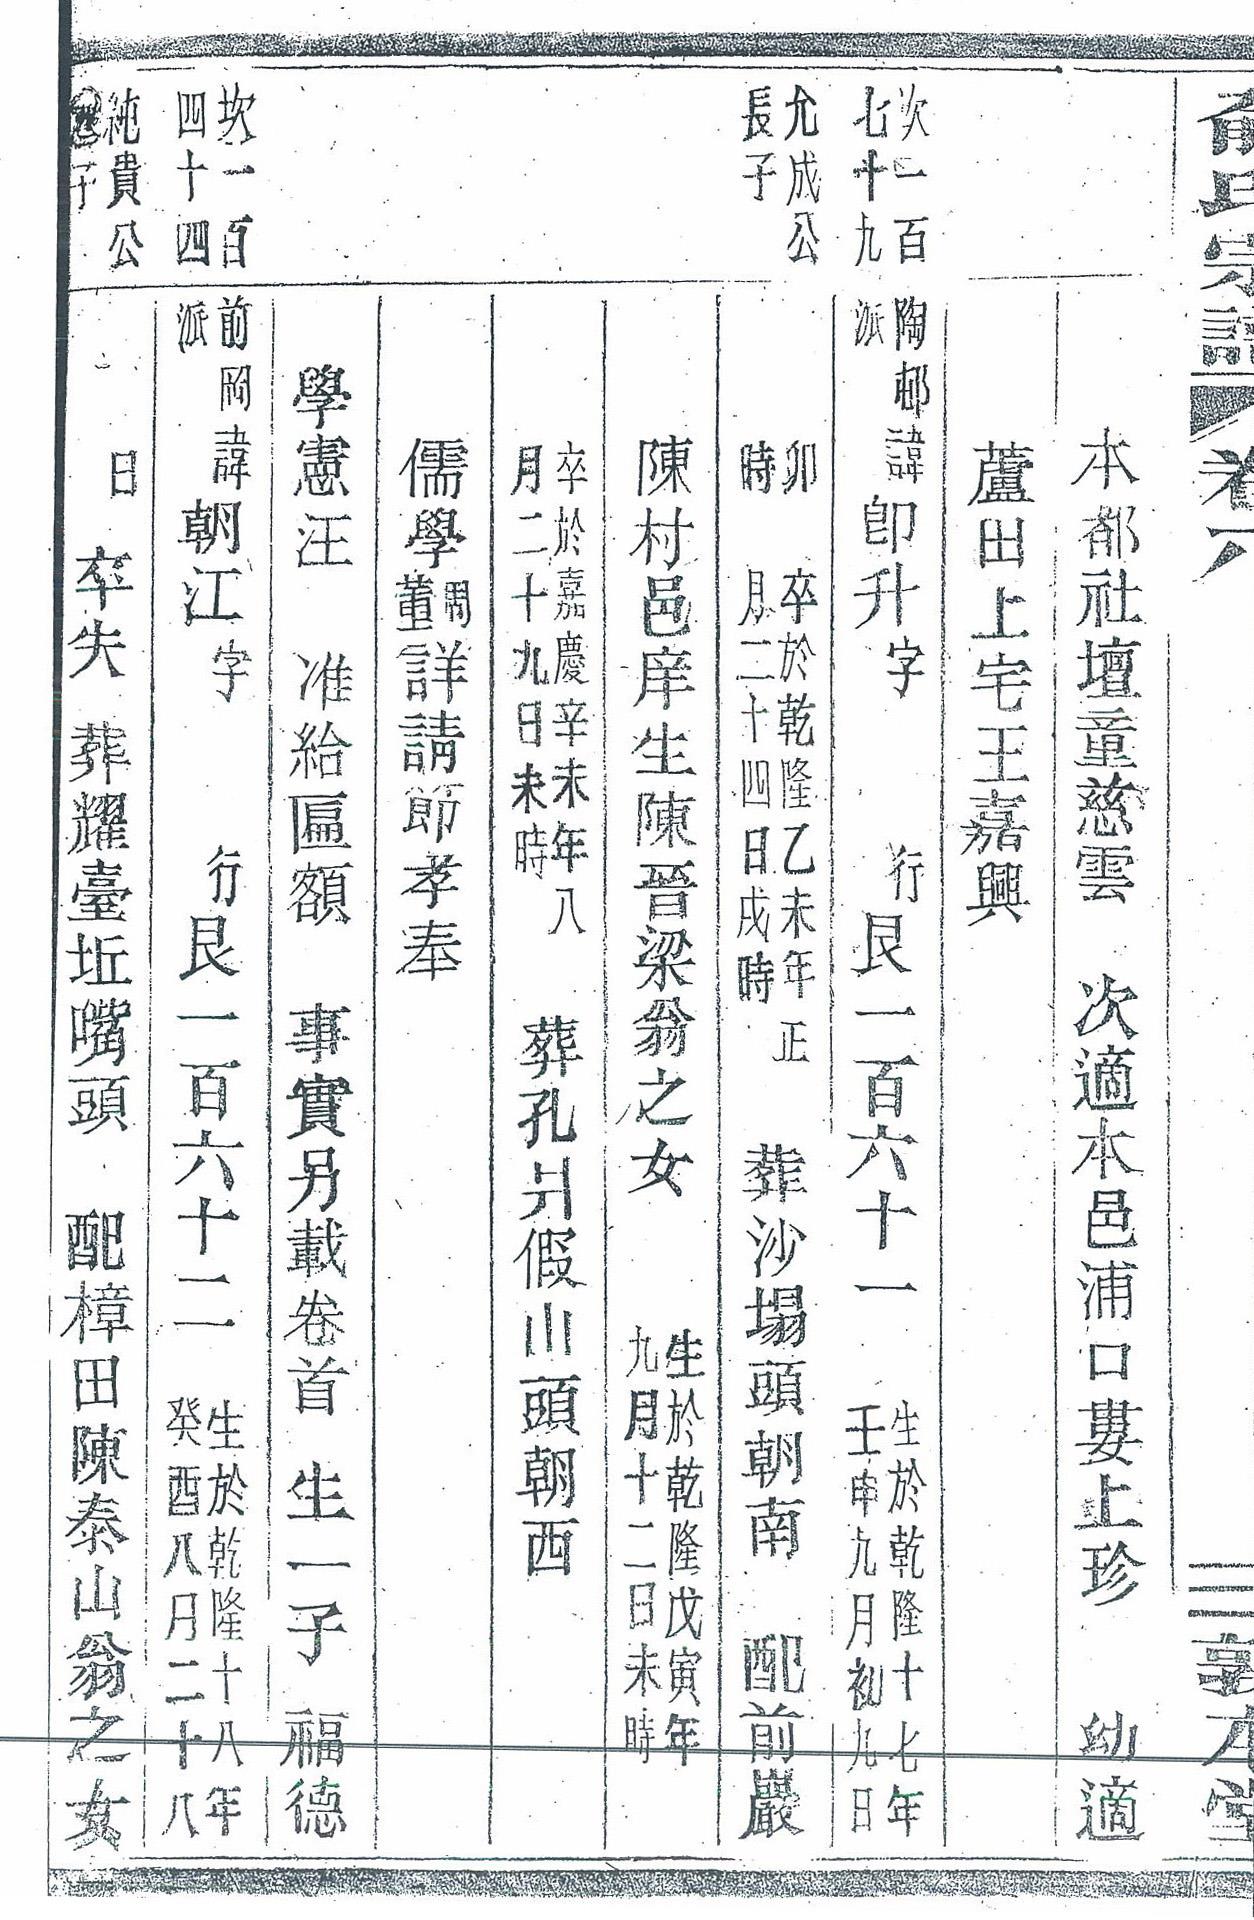 俞氏宗譜 卷六 敦本堂
本都社壇童慈雲 次適本邑浦口婁上珍 幼適
蘆田上宅王嘉興
坎一百
七十九
陶邨諱卽升字 行艮一百六十一 生於乾隆十七年
派 壬申九月初九日
允成公
長子
卯 卒於乾隆乙未年正
時 月二十四日戌時 葬沙塌頭朝南 配前巖
陳村邑庠生陳晉梁翁之女 生於乾隆戊寅年
九月十二日未時
卒於嘉慶辛未年八
月二十九日未時 葬孔爿假山頭朝西
儒學周
董詳請節孝奉
學憲汪 准給匾額 事實另載卷首 生一子 福德
坎一百
四十四
前岡諱朝江字 行艮一百六十二 生於乾隆十八年
派 癸酉八月二十八
純貴公
子
日 卒失 葬耀臺坵嘴頭 配樟田陳泰山翁之女